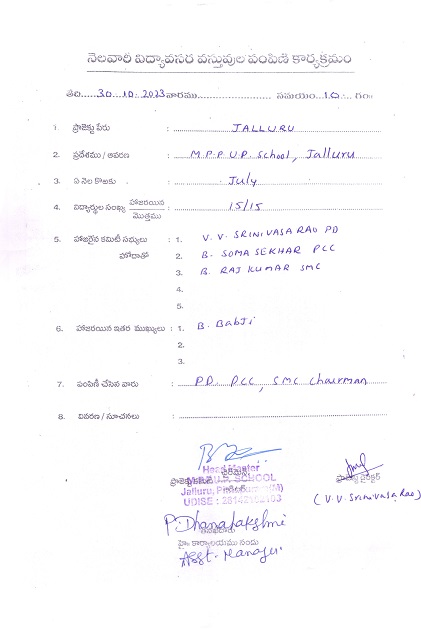 నెలవారి విద్యావసర వస్తువుల పంపిణి కార్యక్రమం
తేది.....30.10.2023 వారము........................ సమయం.10... గం.
1. ప్రాజెక్టు పేరు : JALLURU
2. ప్రదేశము / ఆవరణ : M.P.P U.P. School, Jalluru
3. ఏ నెల కొఱకు : July
4. విద్యార్థుల సంఖ్య హాజరయిన / మొత్తము : 15/15
5. హాజరైన కమిటీ సభ్యులు : 1. V. V. SRINIVASA RAO PD
హోదాతో 2. B. SOMA SEKHAR PCC
3. B. RAJ KUMAR SMC
4.
5.
6. హాజరయిన ఇతర ముఖ్యులు : 1. B. Babji
2.
3.
7. పంపిణీ చేసిన వారు : PD. PCC, SMC Chairman
8. వివరణ / సూచనలు :
Head Master
M.P.P.U.P. SCHOOL
Jalluru,
UDISE :
ప్రాజెక్ట్ డైరెక్టర్
(V.V. Srinivasa Rao)
P. Dhanalakshmi
హై కార్యాలయము నందు
Asst. Manager